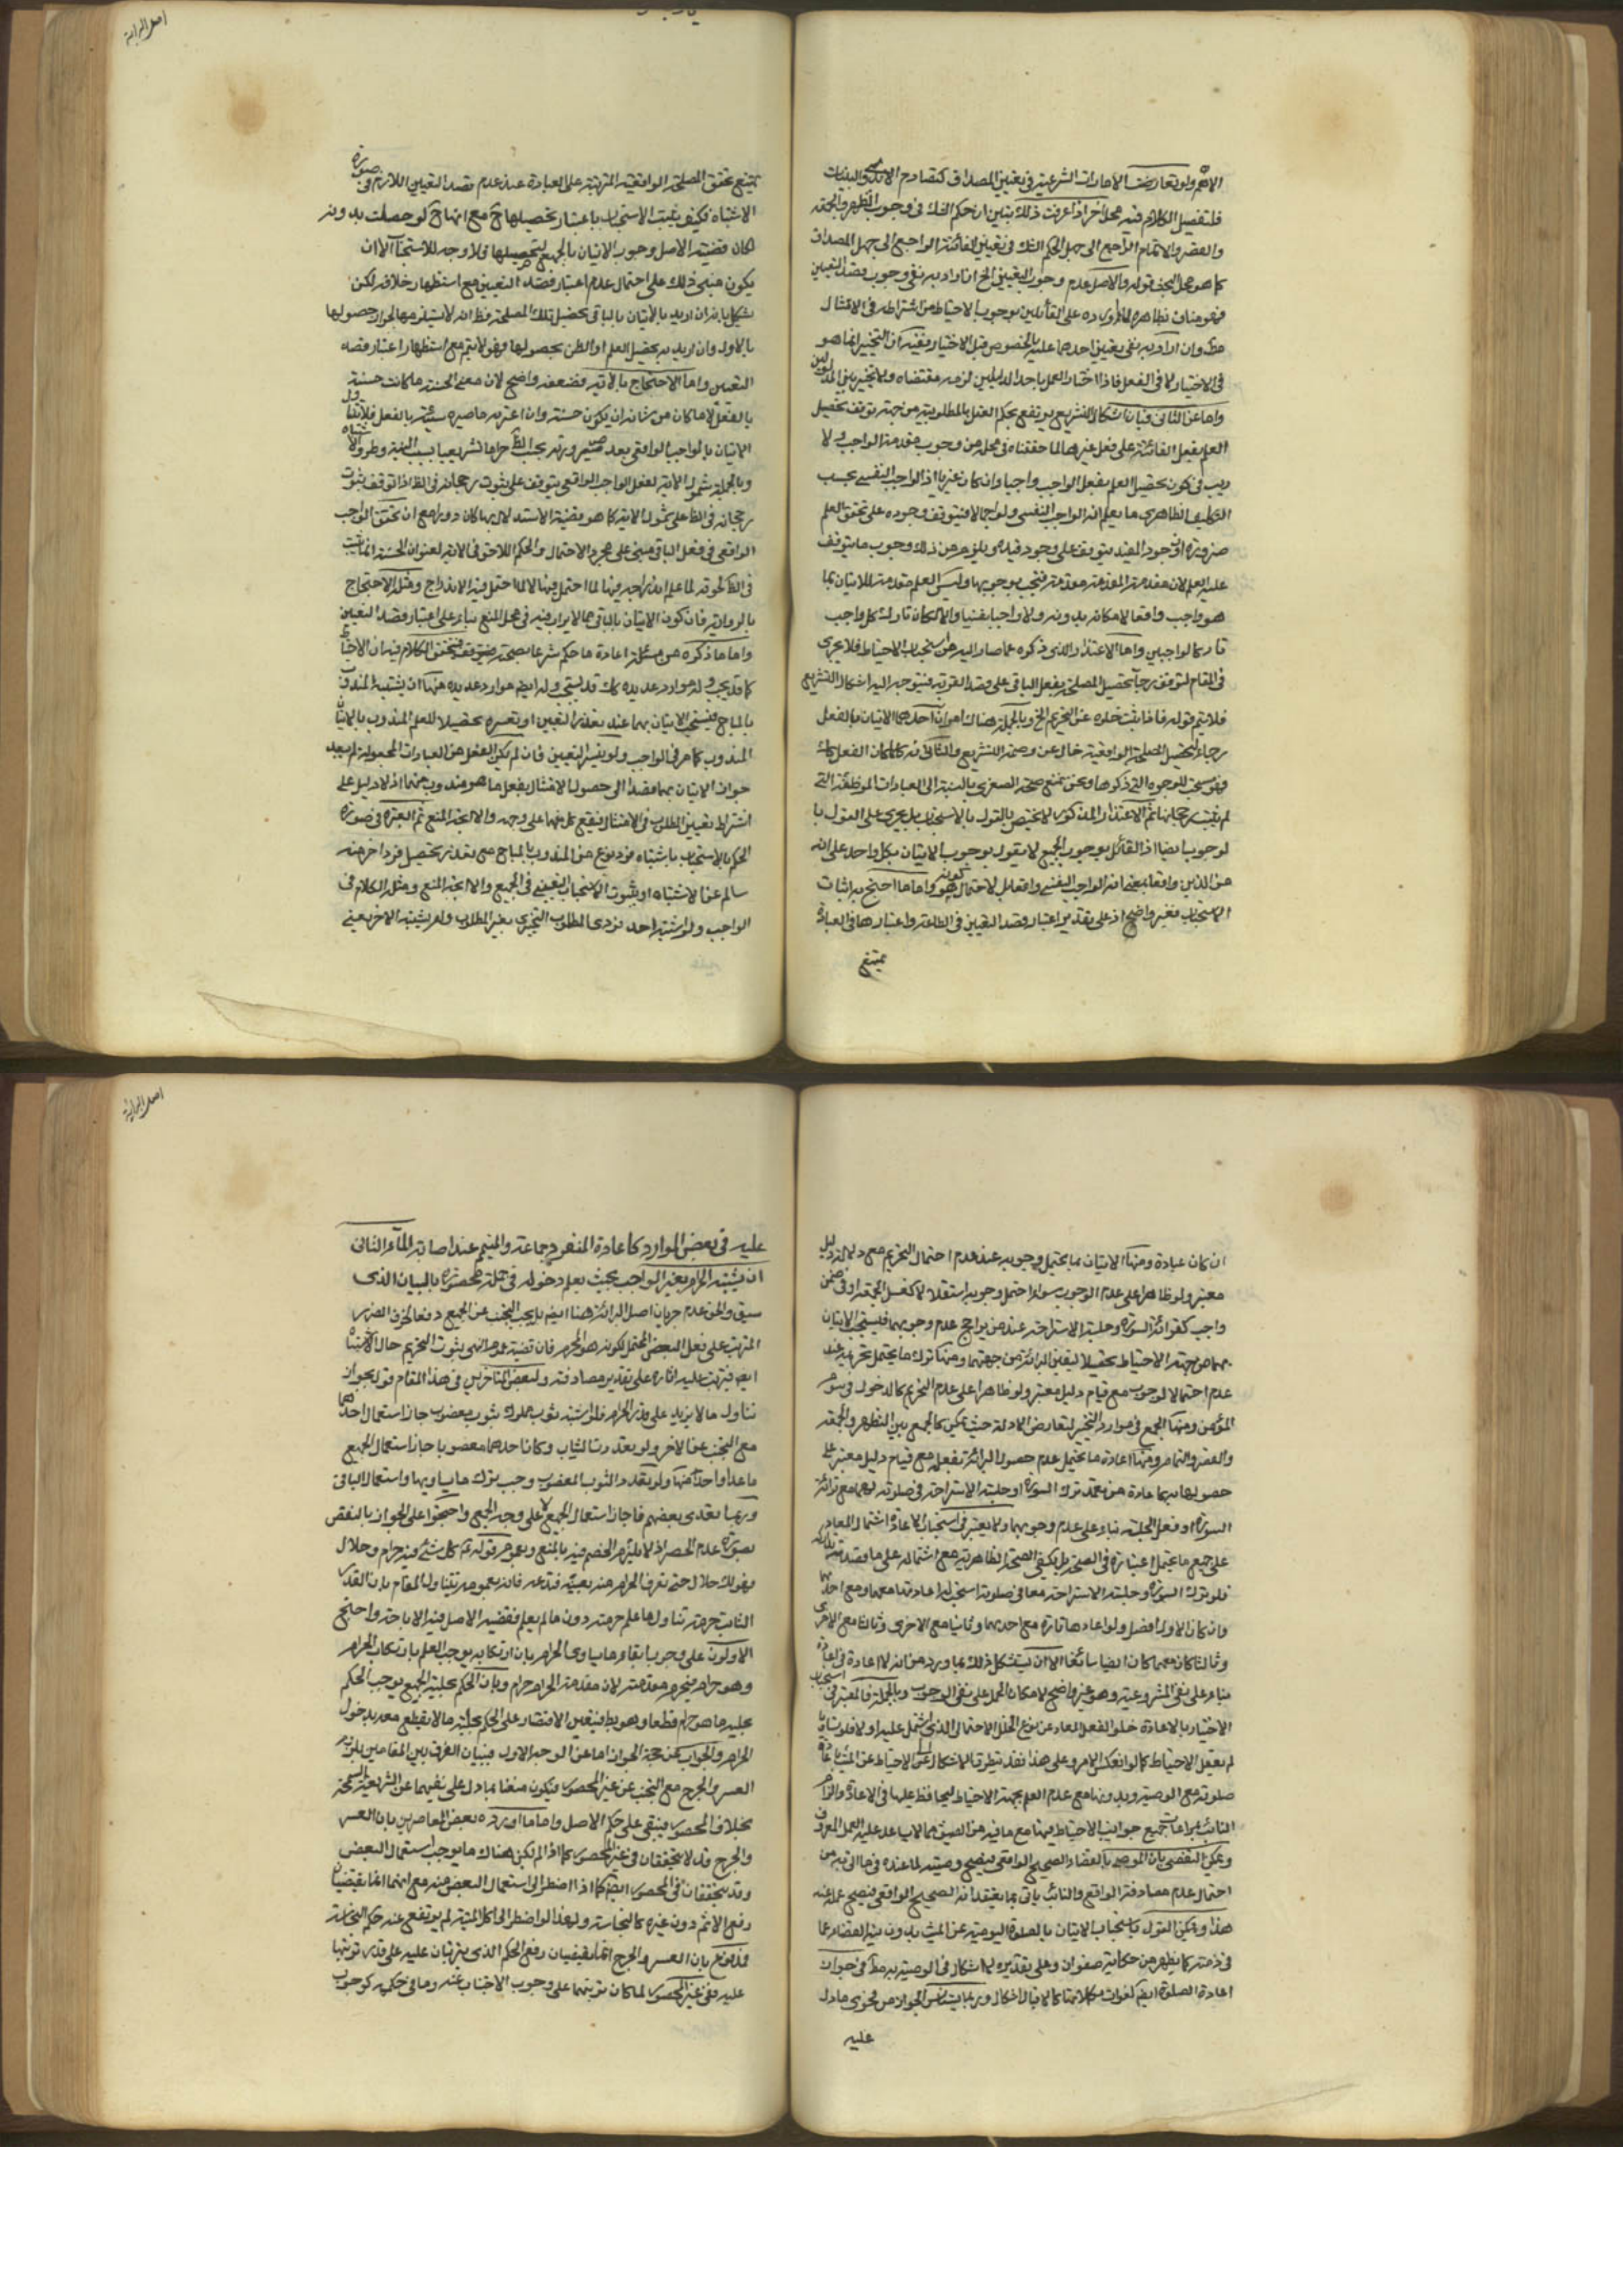 اصل البرائة
الاهم ولو تعارضت الامارات الشرعية فى تعيين المصداق كتصادم الايدى والبينات
فلتفصيل الكلام فيه محل اخر اذا عرفت ذلك تبين ان حكم الشك فى وجوب الظهر والجمعة
والقصر والاتمام الراجع الى جهل الحكم الشك فى تعيين الفائتة الراجع الى جهل المصداق
كما هو محل البحث قوله والاصل عدم وجوب التعيين الخ ان اراد به نفى وجوب قصد التعيين
فهو مناف بظاهره لما اورده على القائلين بوجوب الاحتياط من اشتراطه فى الامتثال
مط وان اراد به نفى تعيين احدهما عليه بالخصوص قبل الاختيار ففيه ان التخيير انما هو
فى الاختيار لا فى الفعل فاذا اختار العمل باحد الدليلين لزمه مقتضاه ولا تخيير بين المدلولين
واما عن الثانى فبان اشكال التشريع يرتفع بحكم العقل بالمطلوبية من جهة توقف تحصيل
العلم بفعل الفائتة على فعل غيرها لما حققناه فى محله من وجوب مقدمة الواجب ولا
ريب فى كون تحصيل العلم بفعل الواجب واجبا وان كان غيريا اذ الواجب النفسى بحسب
التكليف الظاهرى ما يعلم انه الواجب النفسى ولو اجمالا فيتوقف وجوده على تحقق العلم
ضرورة ان وجود المقيد يتوقف على وجود قيده ويلزم من ذلك وجوب ما يتوقف
عليه العلم لان مقدمة المقدمة مقدمة فتجب بوجوبها وليس العلم مقدمة للاتيان بما
هو واجب واقعا لامكانه بدونه ولا واجبا نفسيا والا لكان تارك كل واجب
تاركا لواجبين واما الاعتذار الذى ذكروه عما صار اليه من استحباب الاحتياط فلا يجرى
فى المقام لتوقف رجاء تحصيل المصلحة بفعل الباقى على قصد القربة فيتوجه اليه اشكال التشريع
فلا يتم قوله فاذا ثبت خلوه عن التحريم الخ وبالجملة هناك امران احدهما الاتيان بالفعل
رجاء لتحصيل المصلحة الواقعية خال عن وصمة التشريع والثانى انه كلما كان الفعل كك
فهو مستحب للوجوه التى ذكروها ونحن نمنع صحة الصغرى بالنسبة الى العبادات الموظفة التى
لم يثبت رجحانها ثم الاعتذار المذكور لا يختص بالقول بالاستحباب بل يجرى على القول با
لوجوب ايضا اذ القائل بوجوب الجميع لا يقول بوجوب الاتيان بكل واحد على انه
من الدين واقعا بمعنى انه الواجب النفسى واقعا بل لاحتمال كونه هو واما ما احتج به اثبات
الاستحباب فغير واضح اذ على تقدير اعتبار قصد التعيين فى الطاعة واعتبارها فى العبادة
يمتنع
يمتنع تحقق المصلحة الواقعية المترتبة على العبادة عند عدم قصد التعيين اللازم فى صورة
الاشتباه فكيف يثبت الاستحباب باعتبار تحصيلها ح مع انها ح لو حصلت بدونه
لكان قضية الاصل وجوب الاتيان بالجميع لتحصيلها فلا وجه للاستحباب الا ان
يكون مبنى ذلك على احتمال عدم اعتبار قصد التعيين مع استظهار خلافه لكن
يشكل بانه ان اريد بالاتيان بالباقى تحصيل تلك المصلحة فظ انه لا يستلزمها لجواز حصولها
بالاول وان اريد به تحصيل العلم او الظن بحصولها فهو لا يتم مع استظهار اعتبار قصد
التعيين واما الاحتجاج بالاية فضعفه واضح لان معنى الحسنة ما كانت حسنة
بالفعل لا ما كان من شانه ان يكون حسنة وان اعتريه ما صيره سيئة بالفعل فلا يتناول
الاتيان بالواجب الواقعى بعد صيرورته بحسب الظ حراما تشريعيا بسبب النية وطرو الاشتباه
وبالجملة شمول الاية لفعل الواجب الواقعى يتوقف على ثبوت رجحانه فى الظ اذا توقف ثبوت
رجحانه فى الظ على شمول الاية كما هو قضية الاستدلال بها كان دورا مع ان تحقق الواجب
الواقعى فى فعل الباقى مبنى على مجرد الاحتمال والحكم اللاحق فى الاية لعنوان الحسنة انما يثبت
فى الظ لحوقه لما علم اندراجه فيها لا لما احتمل فيه الاندراج ومثله الاحتجاج
بالرواية فان كون الاتيان بالباقى مما لا يراب فيه فى محل المنع بناء على اعتبار قصد التعيين
واما ما ذكروه من مسئلة اعادة ما حكم شرعا بصحته فتحقيق الكلام فيه ان الاحتياط
كما قد يجب وله موارد عديدة كك قد يستحب وله ايضا موارد عديدة منها ان يشتبه المندوب
بالمباح فيستحب الاتيان بهما عند تعذر التعيين او تعسره تحصيلا للعلم المندوب بالاتيان
المندوب كما مر فى الواجب ولو تيسر التعيين فان لم يكن الفعل من العبادات المجعولة لم يبعد
جواز الاتيان بهما قصدا الى حصول الامتثال بفعل ما هو مندوب منهما اذ لا دليل على
اشتراط تعيين المطلوب فى الامتثال فيقع كل منهما على وجهه والا اتجه المنع ثم العبرة فى صورة
الحكم بالاستحباب باشتباه فرد نوع من المندوب بالمباح مع تعذر تحصيل فرد اخر منه
سالم عن الاشتباه او بثبوت الاستحباب التعيينى فى الجميع والا اتجه المنع ومثله الكلام فى
الواجب ولو اشتبه احد فردى المطلوب التخييرى بغير المطلوب ولم يشتبه الاخر تعينى
اصل البرائة
ان كان عبادة ومنها الاتيان بما يحتمل وجوبه عند عدم احتمال التحريم مع دلالة دليل
معتبر ولو ظاهرا على عدم الوجوب سواء احتمل وجوبه استقلالا كغسل الجمعة او فى ضمن
واجب كقرائة السورة وجلسة الاستراحة عند من يرجح عدم وجوبهما فيستحب الاتيان
بهما من جهة الاحتياط تحصيلا ليقين البرائة من جهتهما ومنها ترك ما يحتمل تحريمه عند
عدم احتمال الوجوب مع قيام دليل معتبر ولو ظاهرا على عدم التحريم كالدخول فى سوم
المؤمن ومنها الجمع فى موارد التخيير لتعارض الادلة حيث يمكن كالجمع بين الظهر والجمعة
والقصر والتمام ومنها اعادة ما يحتمل عدم حصول البرائة بفعله مع قيام دليل معتبر على
حصولها بها عادة من تعمد ترك السورة او جلسة الاستراحة فى صلوته لهما مع قرائة
السورة او فعل الجلسة بناء على عدم وجوبهما ولا يعتبر فى استحباب الاعادة اشتمال المعاد
على جميع ما يحتمل اعتباره فى الصحة بل يكفى الصحة الظاهرية مع اشتماله على ما قصد تداركه
فلو ترك السورة وجلسة الاستراحة معا فى صلوته استحب له اعادتها معهما ومع احدهما
وان كان الاول افضل ولو اعادها تارة مع احديهما وثانيا مع الاخرى وثالثا مع الاخرى
وثالثا كان معهما كان ايضا سائغا الا ان يستشكل ذلك بما ورد من انه لا اعادة فى اعادة
بناء على نفى المشروعية وهو غير واضح لامكان الحمل على نفى الوجوب وبالجملة فالمعتبر فى استحباب
الاختيار بالاعادة خلو الفعل المعاد عن نوع الخلل الاحتمالى الذى اشتمل عليه اولا فلو تساويا
لم يعقل الاحتياط كما لو انعكس الامر وعلى هذا فقد يتطرق الاشكال الى الاحتياط عن الميت باعادة
صلوته مع الوصية وبدونها مع عدم العلم بجهة الاحتياط ليحافظ عليها فى الاعادة والزام
النائب بمراعات جميع جوانب الاحتياط فيها مع ما فيه من الضيق مما لا يساعد عليه العمل المعروف
ويمكن التفصى بان الموصى به القضاء الصحيح الواقعى فيصح وصيته لما عنده فى ما اتى به من
احتمال عدم مصادفة الواقع والنائب ياتى بما يعتقد انه الصحيح الواقعى فيصح عمله عنه
هذا ويمكن القول باستحباب الاتيان بالصلوة اليومية عن الميت بدون نية القضاء عما
فى ذمته كما يظهر من حكاية صفوان وعلى تقديره لا اشكال فى الوصية به مط فى جواز
اعادة الصلوة ايضا لفوات كمالاتها كالاقبال اشكال وربما يستانس الجواز من فحوى ما دل
عليه
عليه فى بعض الموارد كاعادة المنفرد جماعة والمتيمم عند اصابة الماء الثانى
ان يشتبه الحرام بغير الواجب بحيث يعلم دخوله فى جملة محصورة بالبيان الذى
سبق والحق عدم جريان اصل البرائة هنا ايضا بل يجب التجنب عن الجميع دفعا لخوف الضرر
المترتب على فعل البعض المحتمل لكونه هو الحرام فان قضية عموم النهى ثبوت التحريم حال الاشتباه
ايضا فيترتب عليه اثاره على تقدير مصادفته ولبعض المتاخرين فى هذا المقام قول بجواز
تناول ما لا يزيد على قدر الحرام فلو اشتبه ثوب مملوك بثوب مغصوب جاز استعمال احدهما
مع التجنب عن الاخر ولو تعددت الثياب وكان احدهما مغصوبا جاز استعمال الجميع
ما عدا واحدا منها ولو تعدد الثوب المغصوب وجب ترك ما يساويها واستعمال الباقى
وربما تعدى بعضهم فاجاز استعمال الجميع لا على وجه الجمع واحتجوا على الجواز بالنقض
بصورة عدم الحصر اذ لا يلتزم الخصم فيه بالمنع وبعموم قوله ع كل شئ فيه حرام وحلال
فهو لك حلال حتى تعرف الحرام منه بعينه فتدعه فانه بعمومه يتناول المقام بان القدر
الثابت حرمته تناول ما علم حرمته دون ما لم يعلم فقضية الاصل فيه الاباحة واحتج
الاولون على وجوب ابقاء ما يساوى الحرام بان ارتكابه يوجب العلم بارتكاب الحرام
وهو حرام فيحرم مقدمته لان مقدمة الحرام حرام وبان الحكم بحلية الجميع يوجب الحكم
بحلية ما هو حرام قطعا وهو بط فيتعين الاقتصار على الحكم بحلية ما لا يقطع معه بدخول
الحرام والجواب عن حجة الجواز اما عن الوجه الاول فببيان الفرق بين المقامين بلزوم
العسر والحرج مع التجنب عن غير المحصور فيكون منفيا بما دل على نفيهما عن الشريعة السمحة
بخلاف المحصور فيبقى على حكم الاصل واما ما اورده بعض المعاصرين بان العسر
والحرج قد لا يتحققان فى غير المحصور كما اذا لم يكن هناك ما يوجب استعمال البعض
وقد يتحققان فى المحصور ايضا كما اذا اضطر الى استعمال البعض منه مع انهما انما يقتضيان
رفع الاثم دون غيره كالنجاسة ولهذا لو اضطر الى اكل الميتة لم يرتفع عنه حكم النجاسة
فمدفوع بان العسر والحرج انما يقتضيان رفع الحكم الذى يترتبان عليه على قدر ترتبهما
عليه ففى غير المحصور لما كان ترتبهما على وجوب الاجتناب عنه وما فى حكمه كوجوب